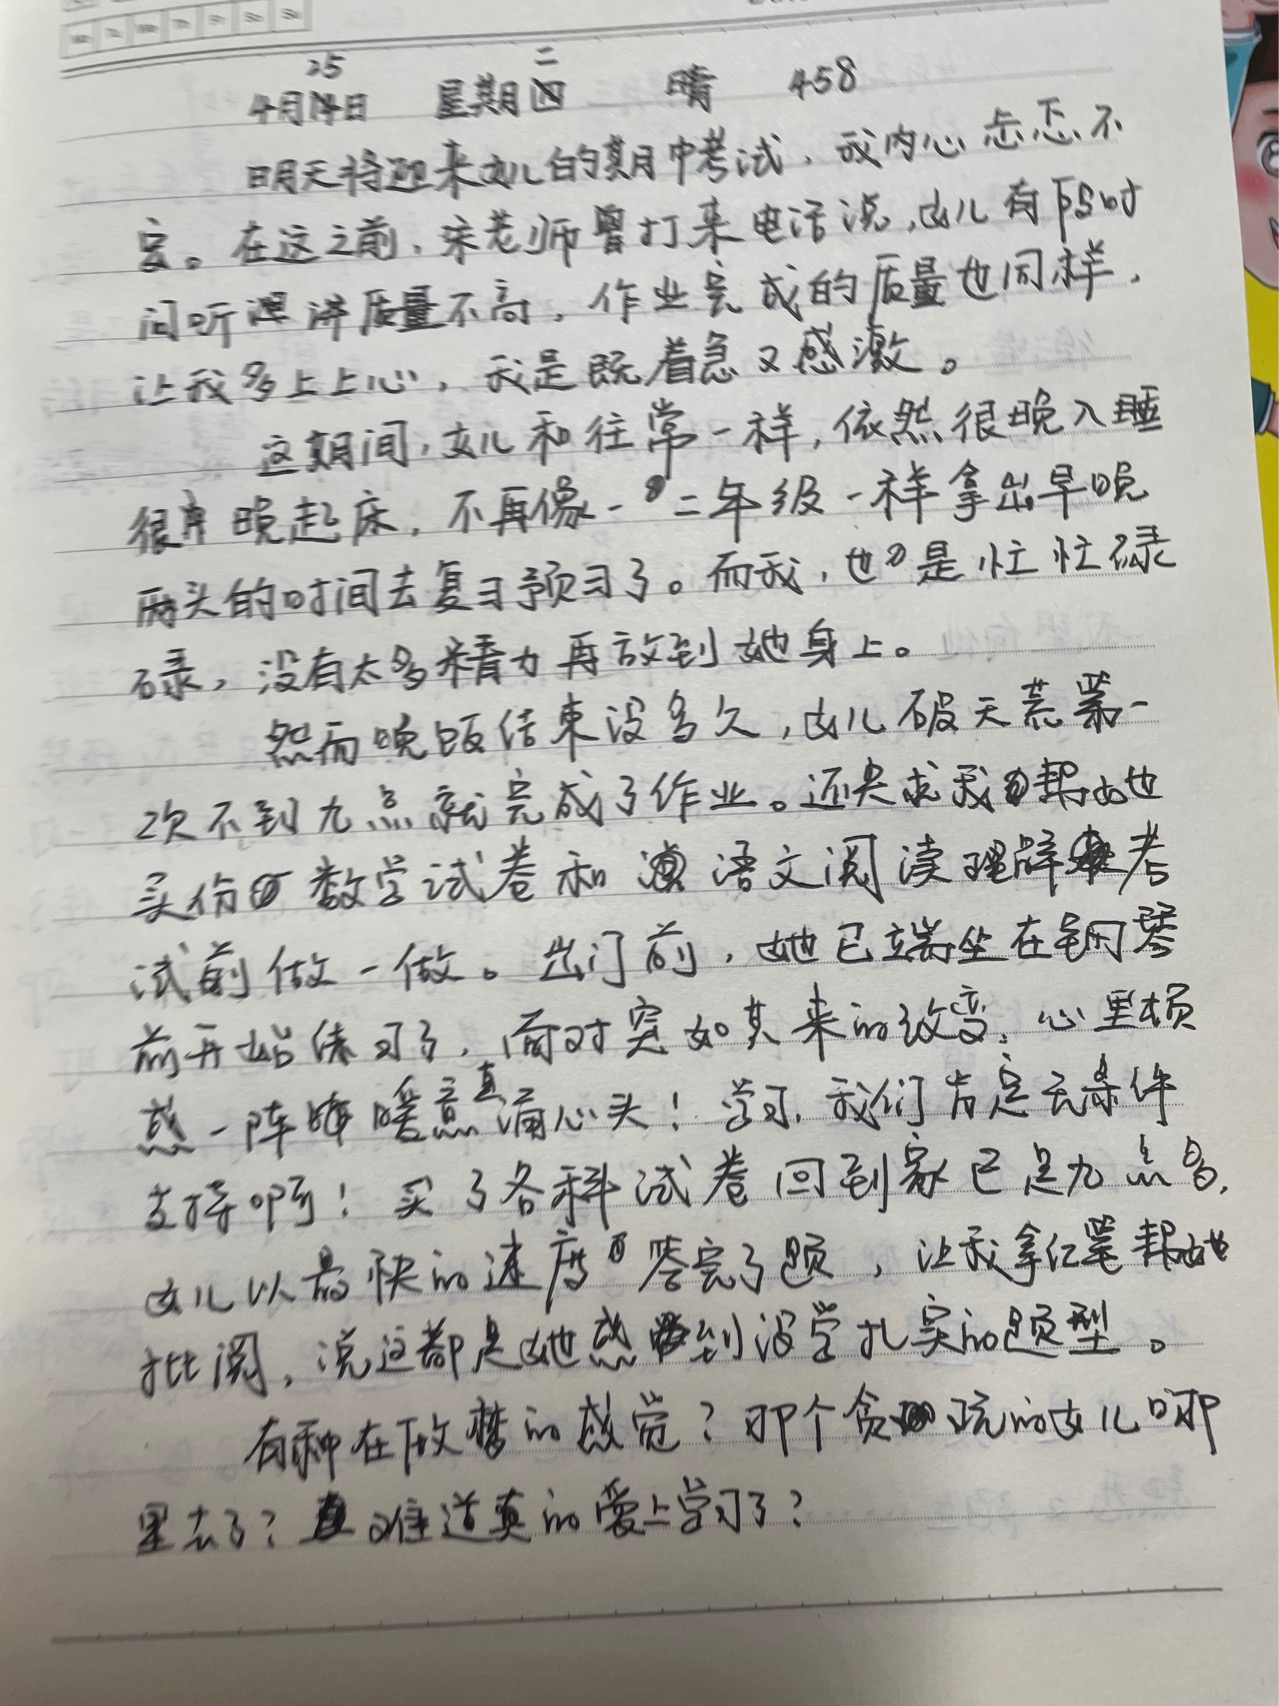 4月25日 星期二 晴 458
明天将迎来女儿的期中考试，我内心忐忑不
定。在这之前，宋老师曾打来电话说，女儿有段时
间听讲质量不高，作业完成的质量也同样，
让我多上上心，我是既着急又感激。
这期间，女儿和往常一样，依然很晚入睡
很晚起床，不再像一二年级一样拿出早晚
两头的时间去复习预习了。而我，也是忙忙碌
碌，没有太多精力再放到她身上。
然而晚饭结束没多久，女儿破天荒第一
次不到九点就完成了作业。还央求我帮她
买份数学试卷和语文阅读理解考
试前做一做。出门前，她已端坐在钢琴
前开始练习了，面对突如其来的改变，心里
惑一阵暖意直涌心头！学习，我们肯定无条件
支持啊！买了各科试卷回到家已是九点多，
女儿以最快的速度答完了题，让我拿红笔帮她
批阅，说这都是她感到没学扎实的题型。
有种在做梦的感觉？那个贪玩的女儿哪
里去了？难道真的爱上学习了？